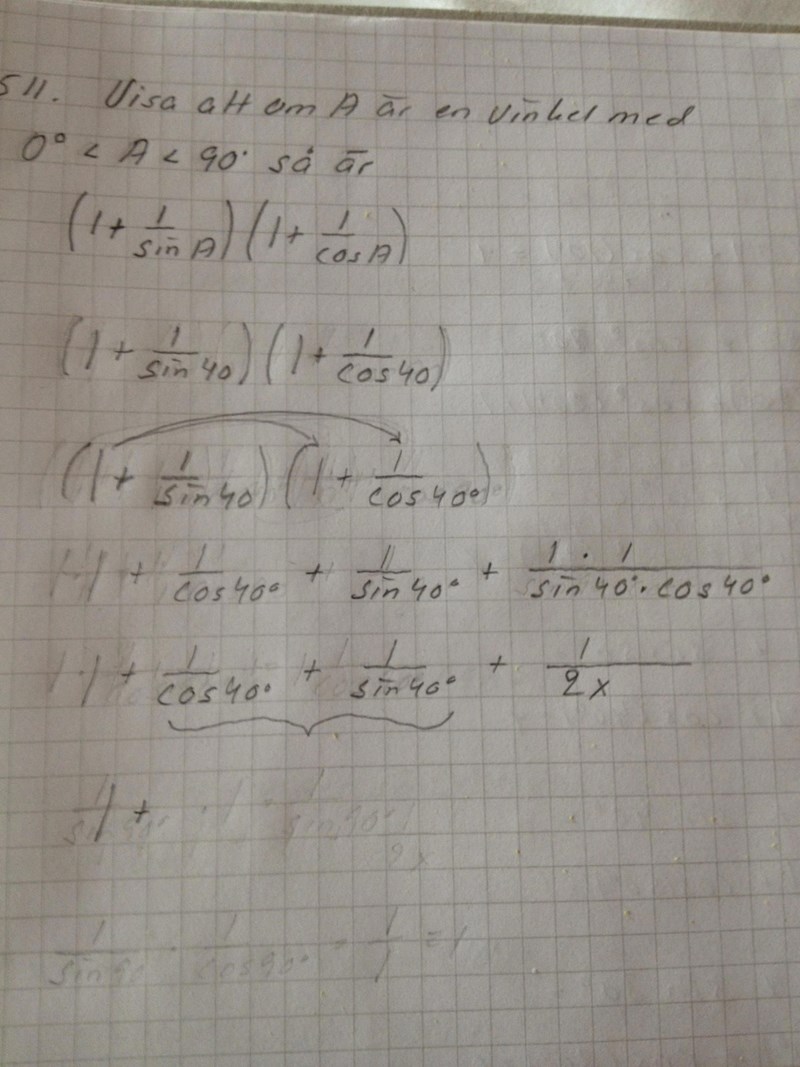 511. Visa att om A är en vinkel med
0° < A < 90° så är
(1 + 1/sin A)(1 + 1/cos A)
(1 + 1/sin 40)(1 + 1/cos 40)
(1 + 1/sin 40)(1 + 1/cos 40°)
1 + 1/cos 40° + 1/sin 40° + 1·1/sin 40°·cos 40°
1 + 1/cos 40° + 1/sin 40° + 1/2x
1 +
= 1/1 = 1